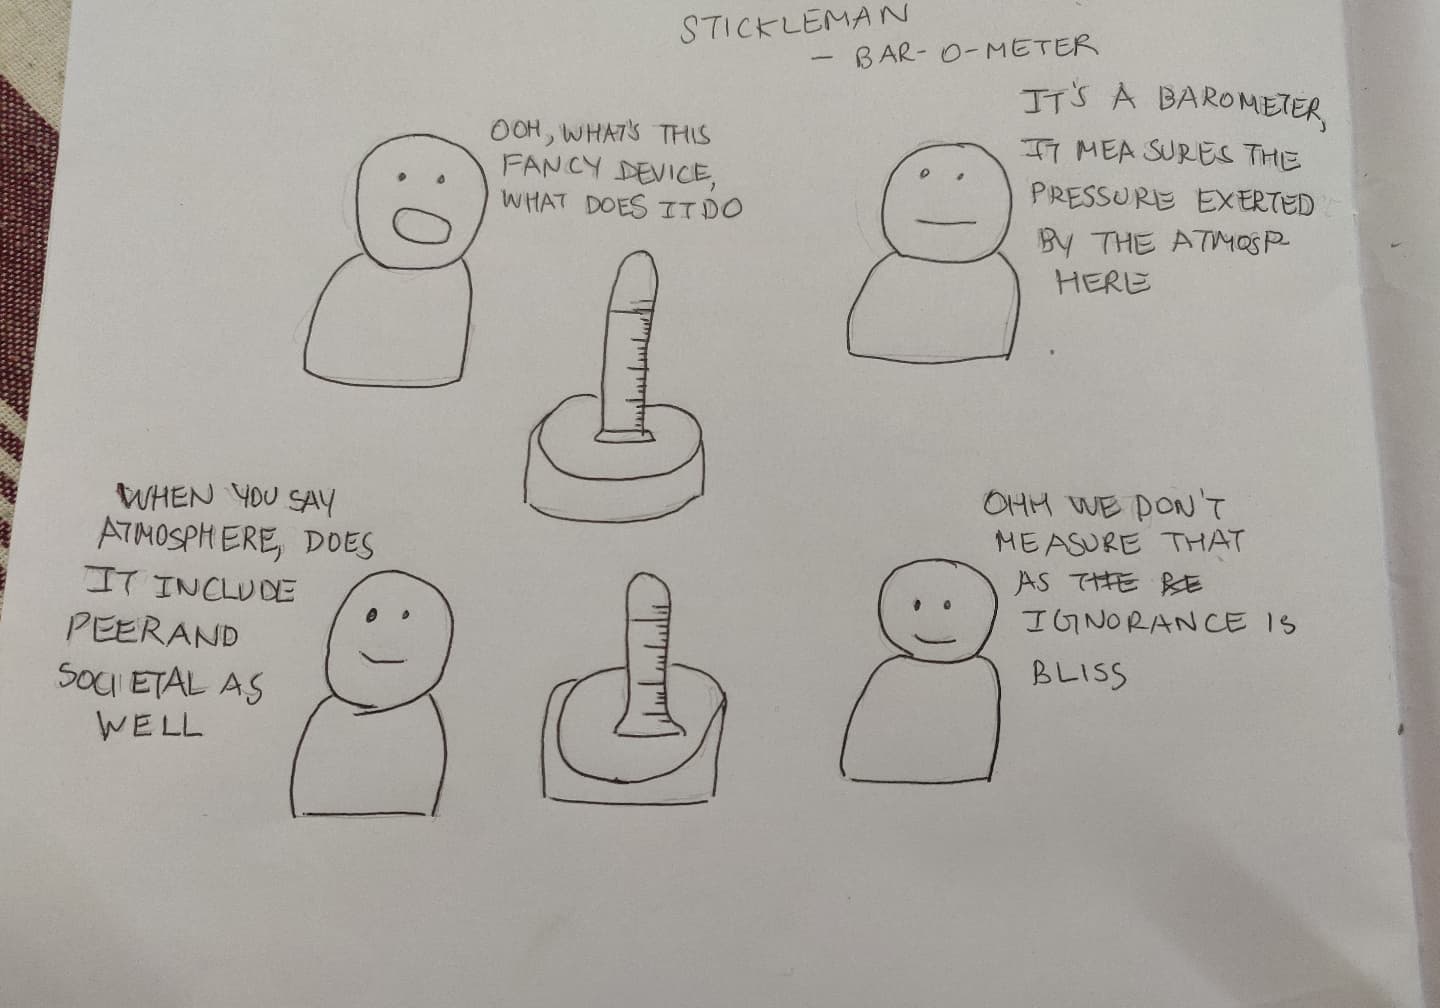 STICKLEMAN
- BAR-O-METER
OOH, WHAT'S THIS
FANCY DEVICE,
WHAT DOES IT DO
IT'S A BAROMETER,
IT MEASURES THE
PRESSURE EXERTED
BY THE ATMOSP
HERE
WHEN YOU SAY
ATMOSPHERE, DOES
IT INCLUDE
PEER AND
SOCIETAL AS
WELL
OHH WE DON'T
MEASURE THAT
AS THE BE
IGNORANCE IS
BLISS